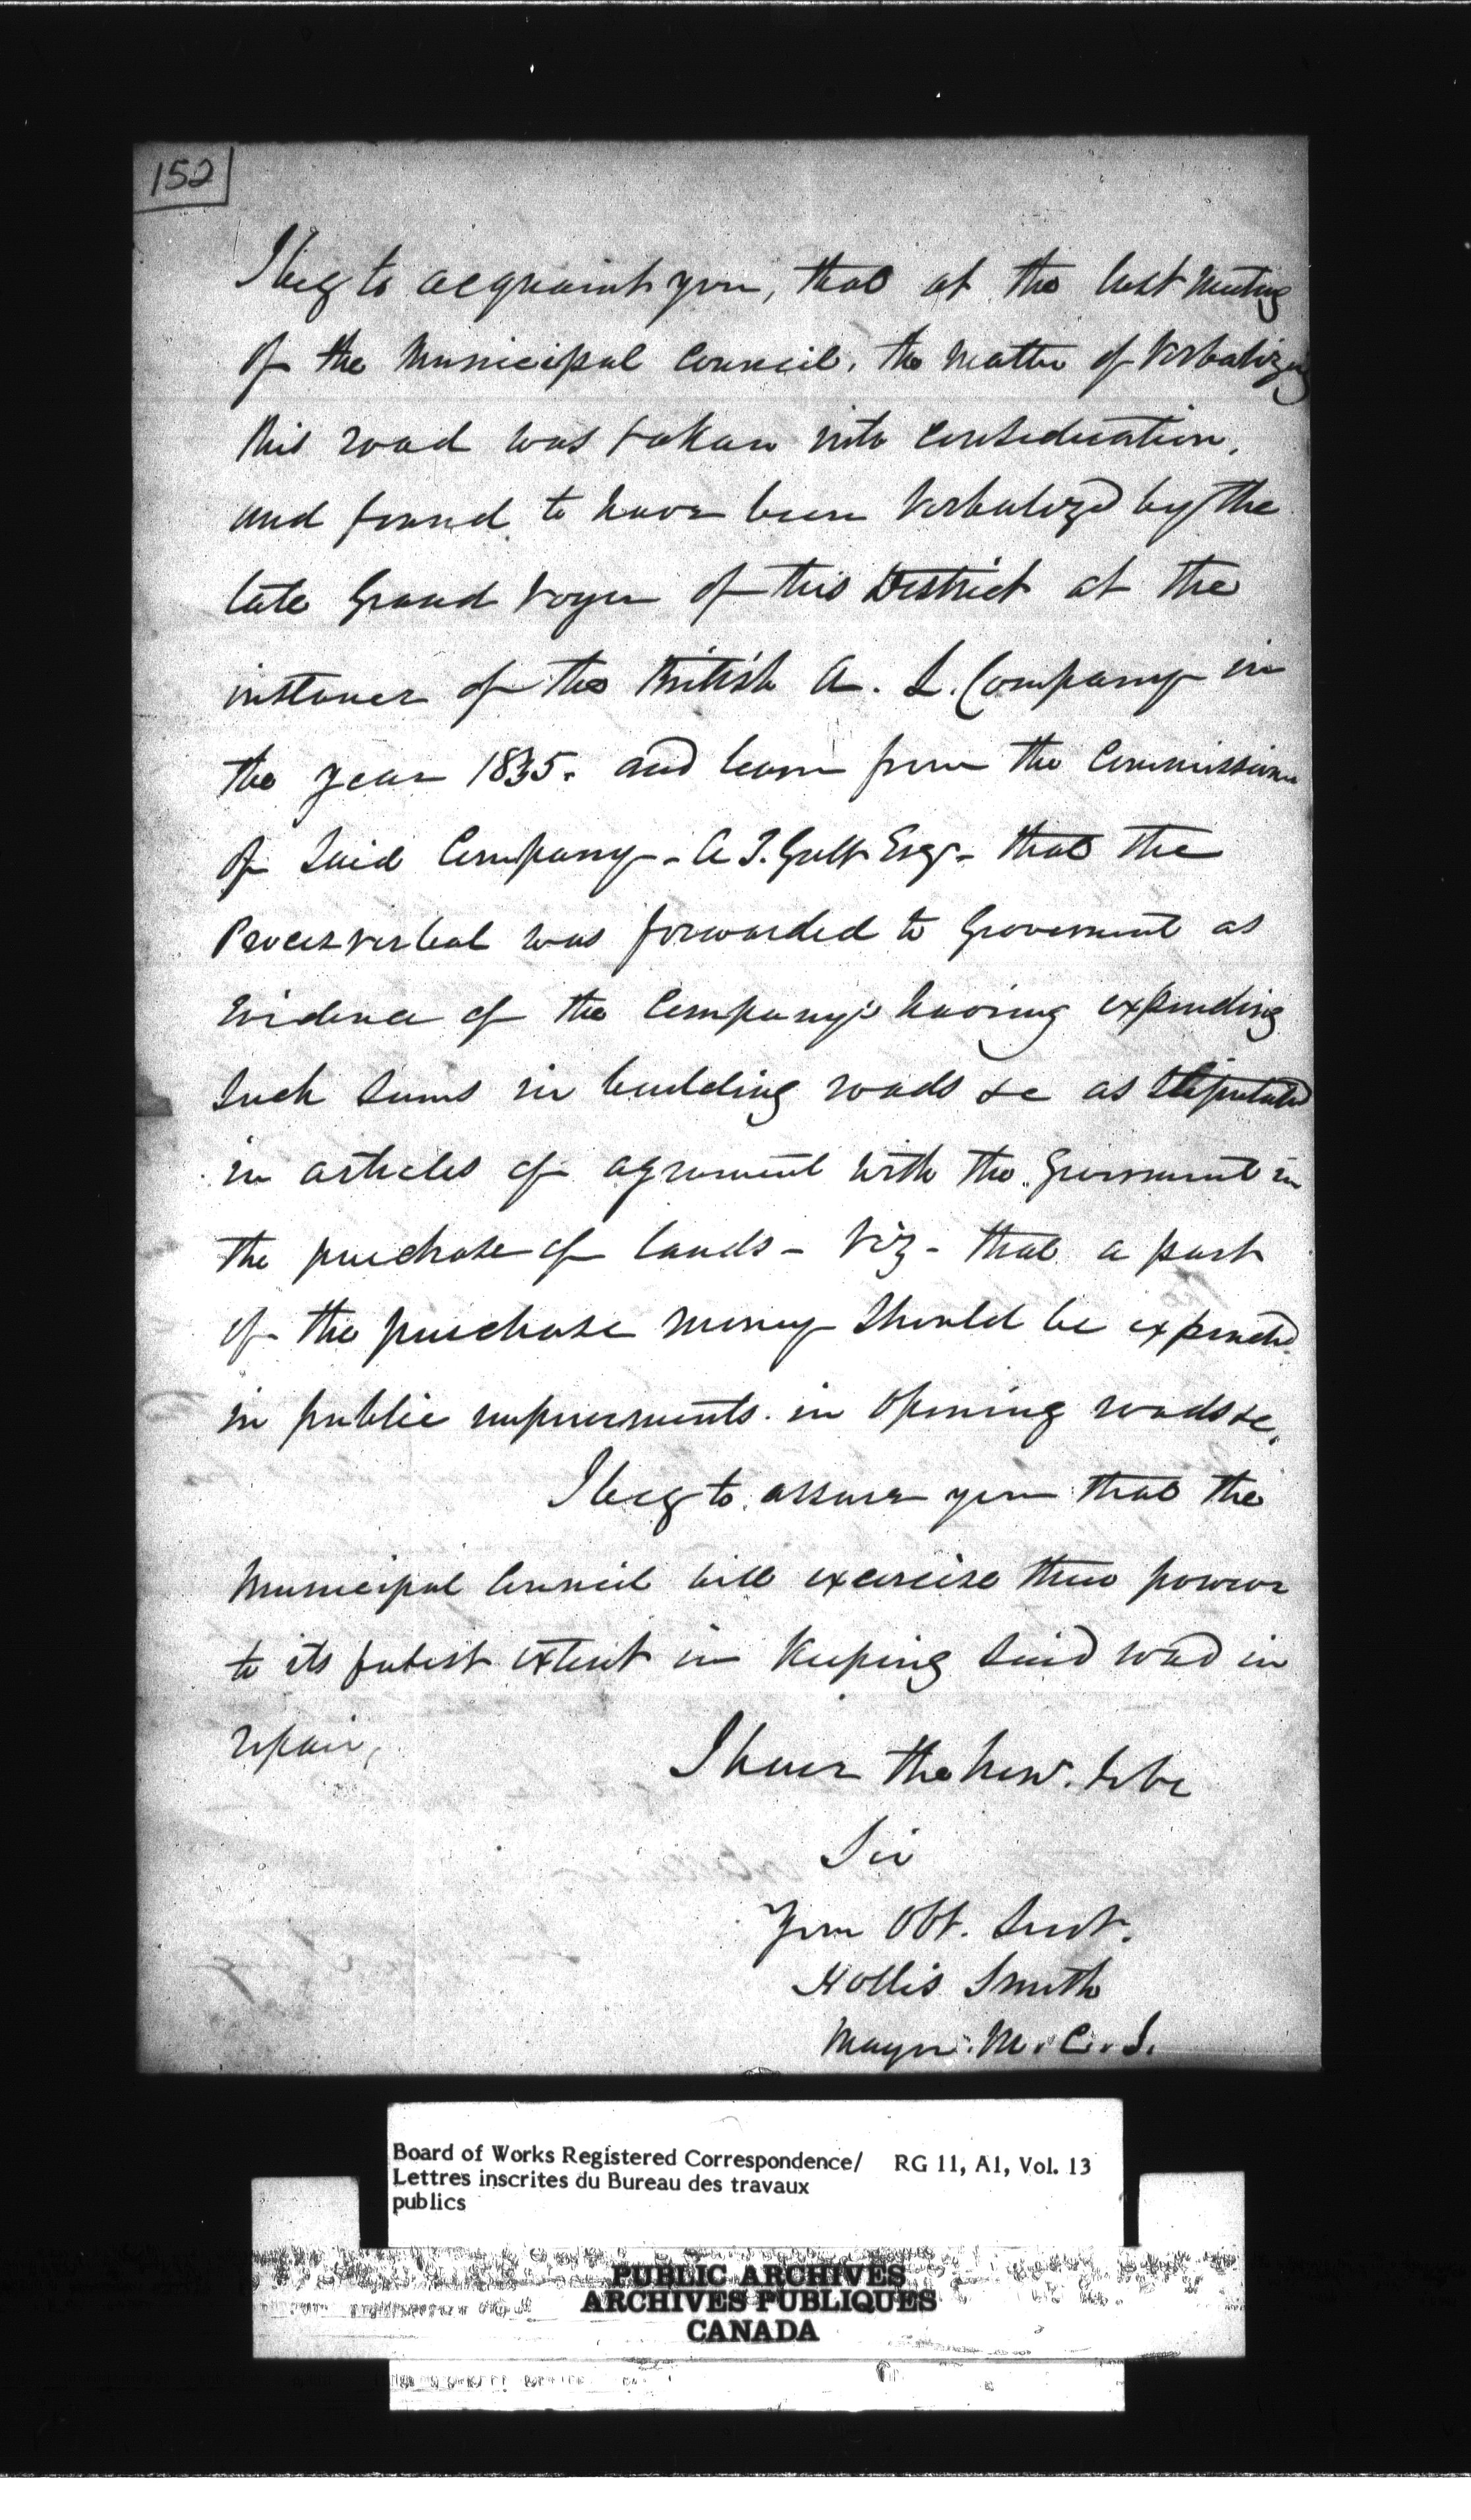 152
I beg to acquaint you, that at the last meeting
of the Municipal Council, the matter of Verbalizing
this road was taken into consideration,
and found to have been Verbalized by the
late Grand Voyer of this District at the
instance of the British A. L. Company in
the year 1835. and learn from the Commissioner
of Said Company - A T. Galt Esqr - that the
Proces verbal was forwarded to Government as
Evidence of the Company's having expending
Such Sums in building roads &c as Stipulated
in articles of agreement with the Government in
the purchase of lands - Viz - that a part
of the purchase money Should be expended
in public improvements. in opening roads &c.
I beg to assure you that the
Municipal Council will exercise their power
to its fullest extent in Keeping Said road in
repair,
I have the honr. to be
Sir
Your Obt. Servt.
Hollis Smith
Mayor. M. C. S.
Board of Works Registered Correspondence/ RG 11, A1, Vol. 13
Lettres inscrites du Bureau des travaux
publics
PUBLIC ARCHIVES
ARCHIVES PUBLIQUES
CANADA